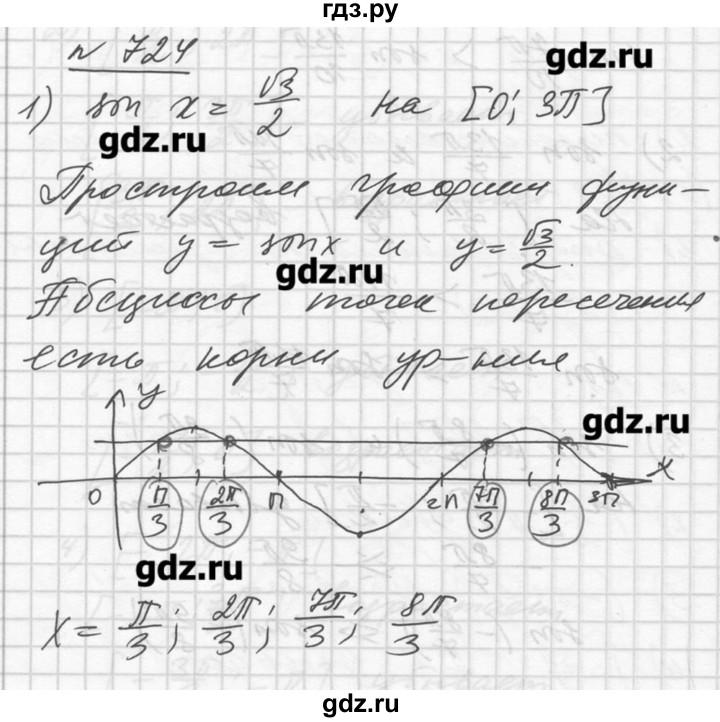 гдз.ру
n 724
gdz.ru
1) sin x = √3/2 на [0; 3П]
gdz.ru
Простроим графики функ-
ций y = sinx и y = √3/2.
gdz.ru
Абсциссы точек пересечения
есть корни ур-ния
y
gdz.ru
x
0 П/3 2П/3 П 2П 7П/3 8П/3 3П
gdz.ru
x = П/3; 2П/3; 7П/3; 8П/3
gdz.ru